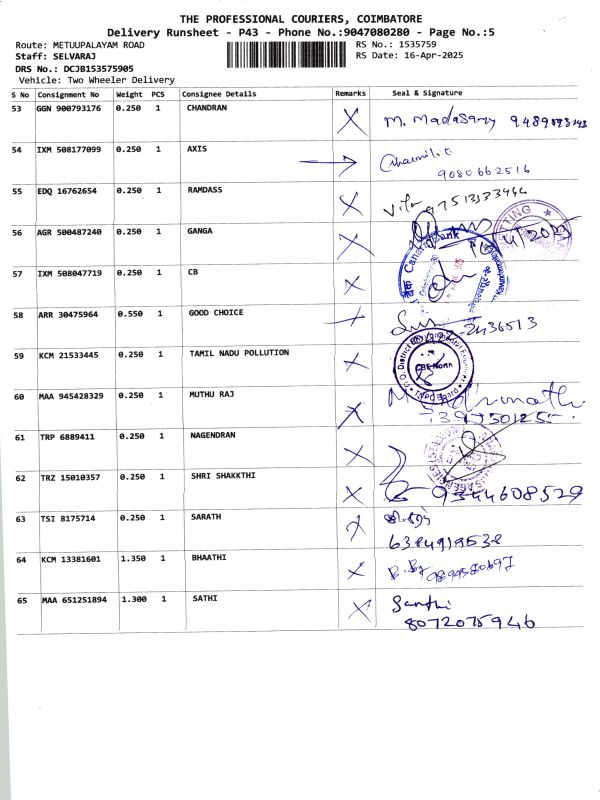 THE PROFESSIONAL COURIERS, COIMBATORE
Delivery Runsheet - P43 - Phone No.:9047080280 - Page No.:5
Route: METUUPALAYAM ROAD RS No.: 1535759
Staff: SELVARAJ RS Date: 16-Apr-2025
DRS No.: DCJB153575905
Vehicle: Two Wheeler Delivery
S No Consignment No Weight PCS Consignee Details Remarks Seal & Signature
53 GGN 900793176 0.250 1 CHANDRAN M. Madasamy
54 IXM 508177099 0.250 1 AXIS
9080662516
55 EDQ 16762654 0.250 1 RAMDASS
56 AGR 500487240 0.250 1 GANGA
57 IXM 508047719 0.250 1 CB Canara Bank
58 ARR 30475964 0.550 1 GOOD CHOICE 2436513
59 KCM 21533445 0.250 1 TAMIL NADU POLLUTION
60 MAA 945428329 0.250 1 MUTHU RAJ
61 TRP 6889411 0.250 1 NAGENDRAN
62 TRZ 15010357 0.250 1 SHRI SHAKKTHI 9344608529
63 TSI 8175714 0.250 1 SARATH
6384919538
64 KCM 13381601 1.350 1 BHAATHI
65 MAA 651251894 1.300 1 SATHI Santhi
8072075946